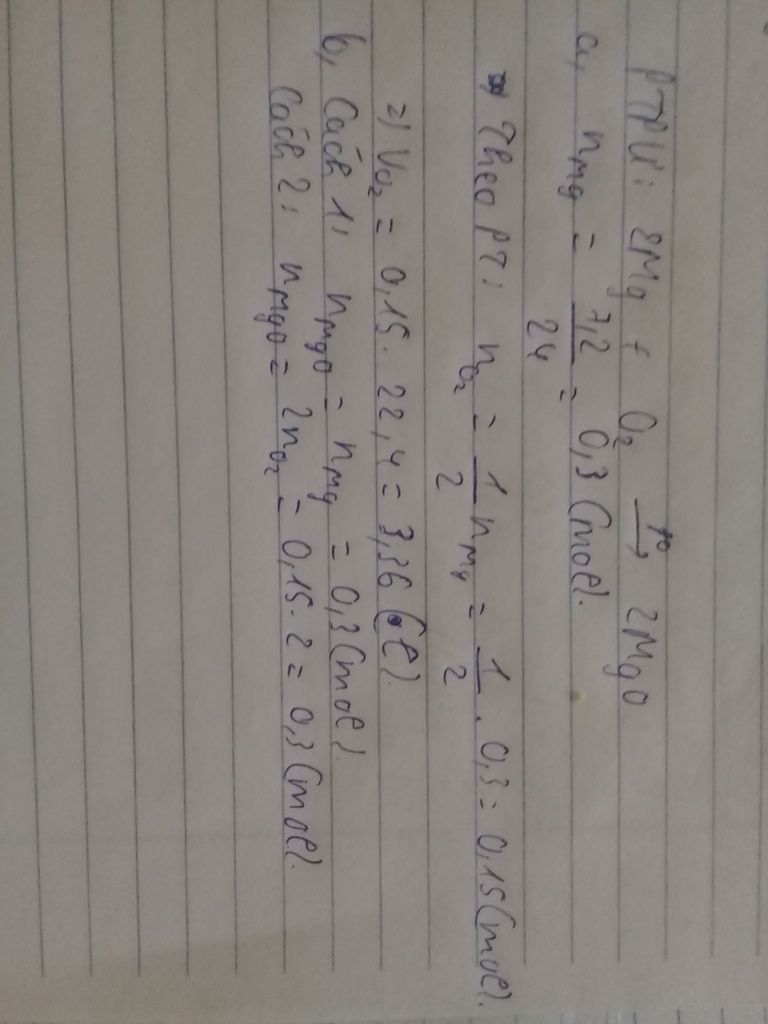 PTPƯ: 2Mg + O₂ →(t⁰) 2MgO
a, nMg = 7,2/24 = 0,3 (mol).
=) Theo PT: nO₂ = 1/2 nMg = 1/2 . 0,3 = 0,15 (mol).
=) VO₂ = 0,15 . 22,4 = 3,36 (l).
b, Cách 1: nMgO = nMg = 0,3 (mol).
Cách 2: nMgO = 2nO₂ = 0,15 . 2 = 0,3 (mol).